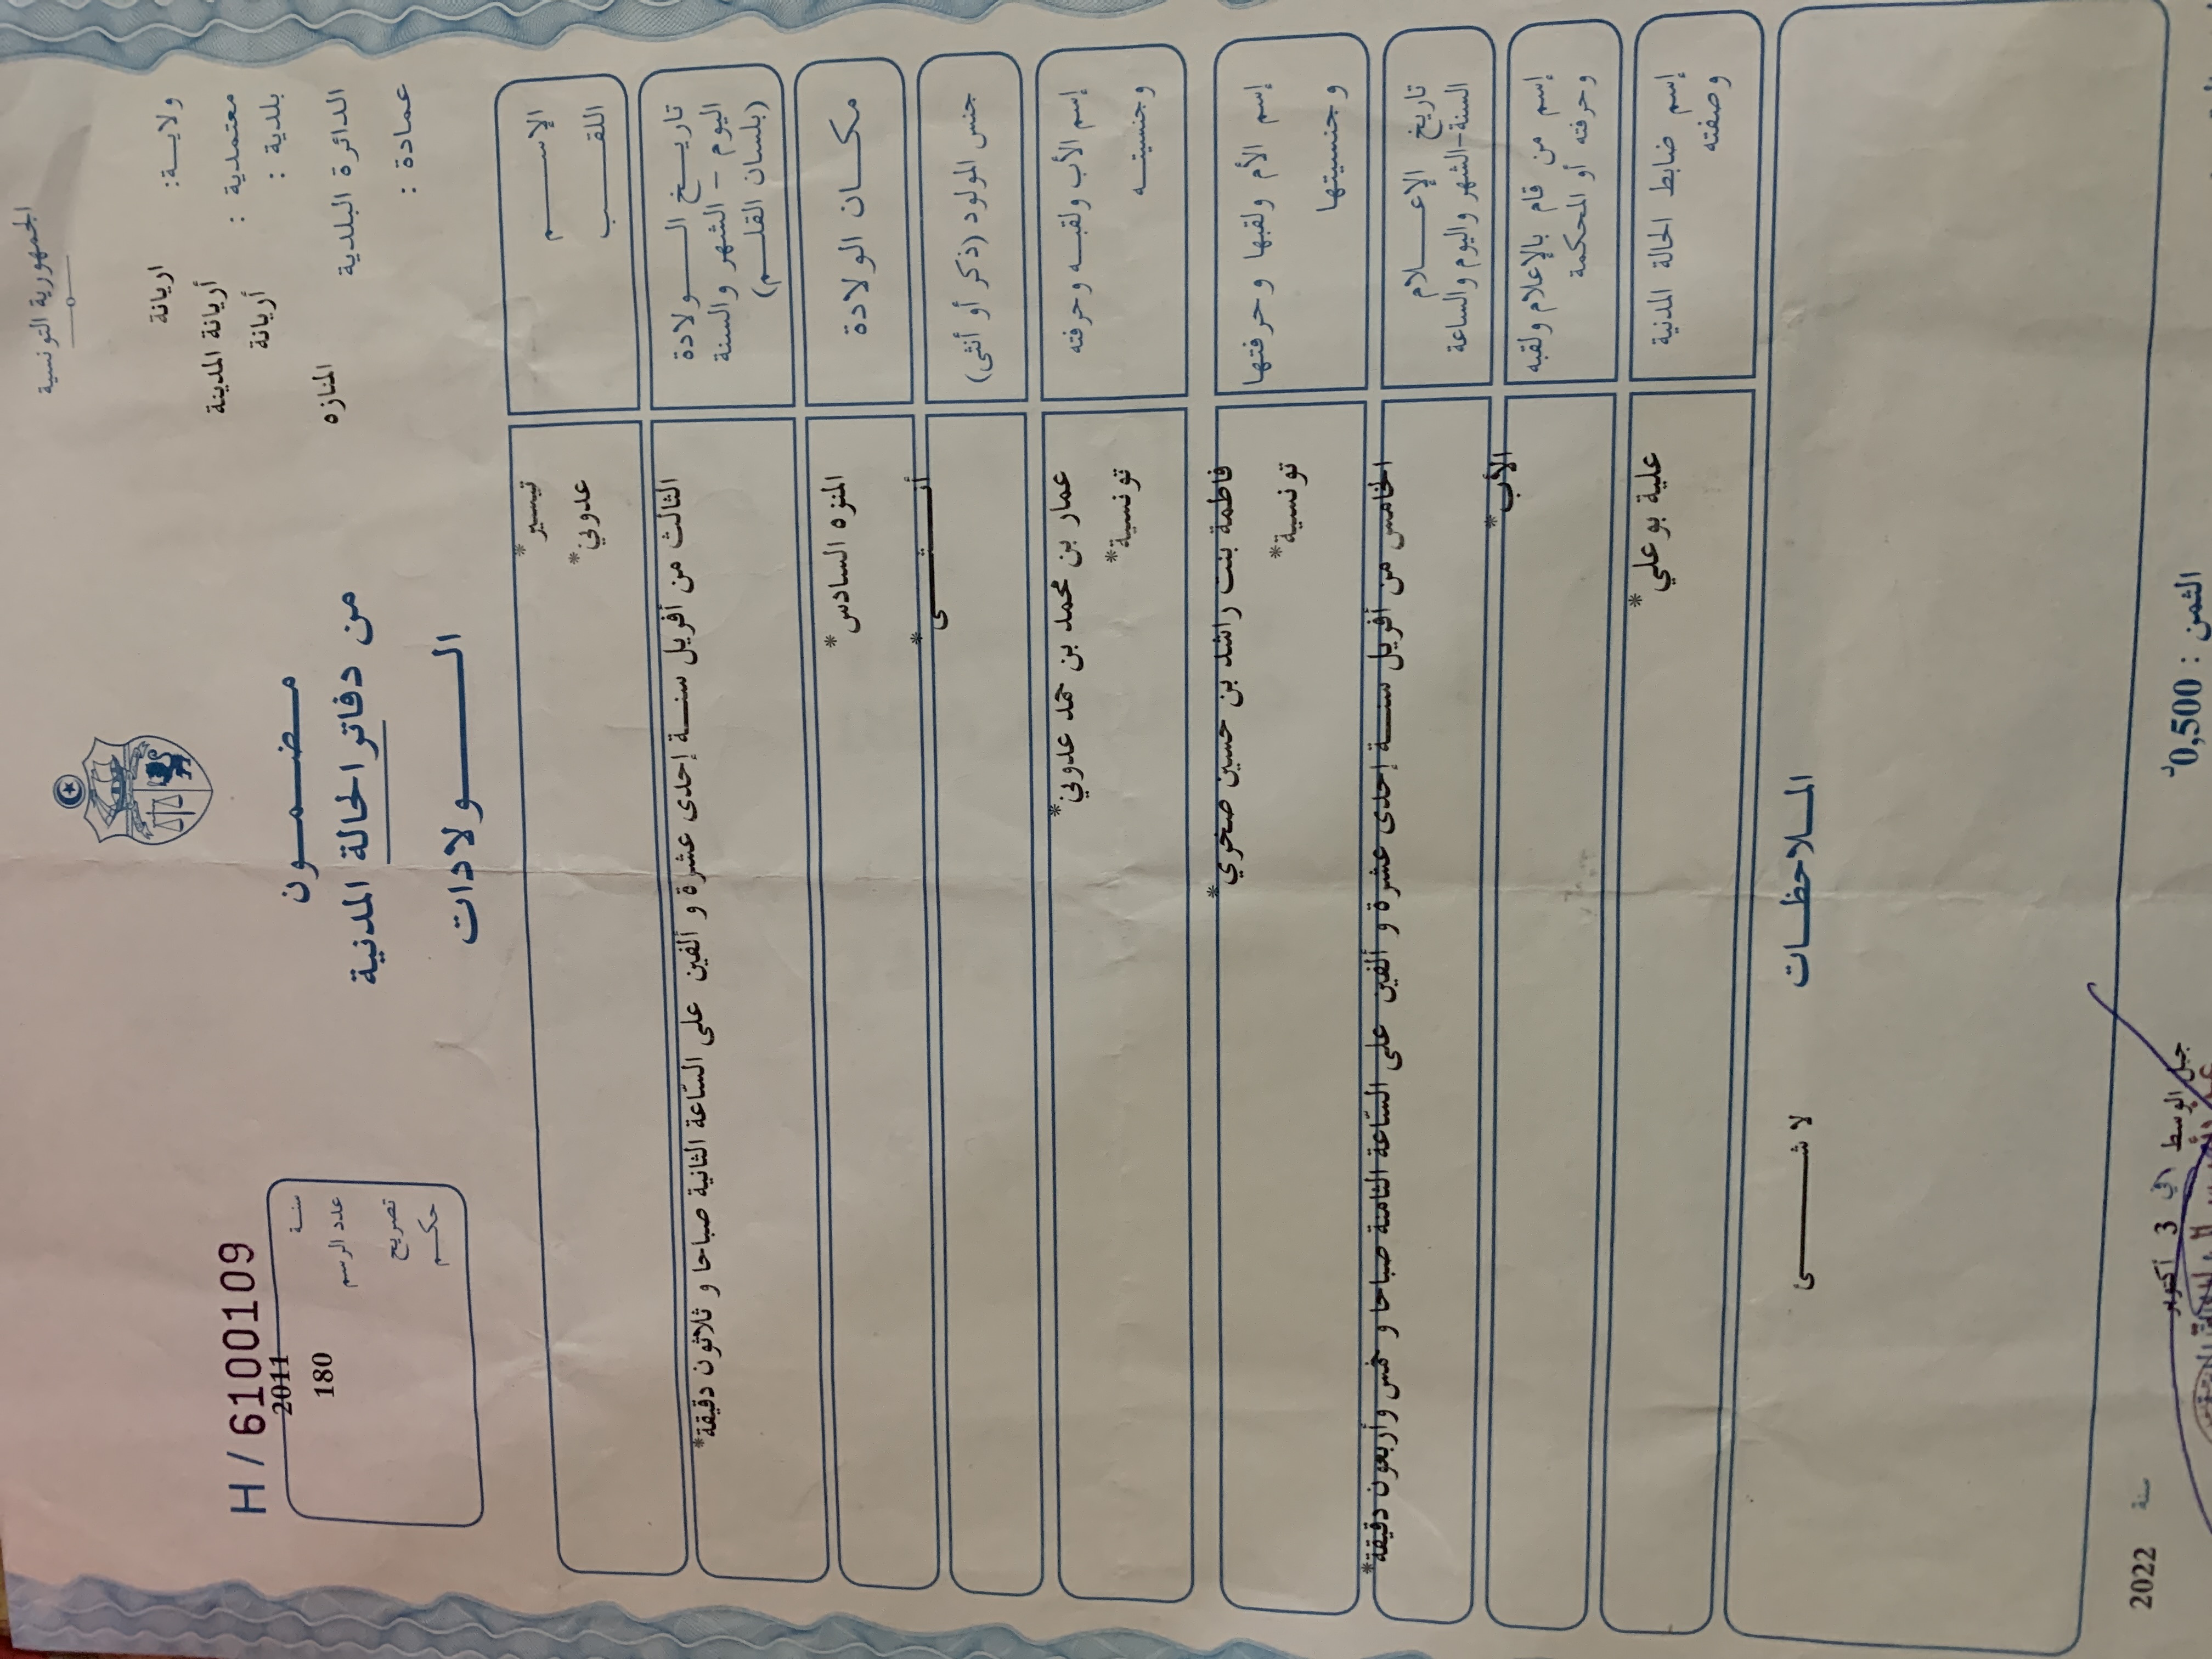 الجمهورية التونسية
ولايـة: اريانة
معتمدية : أريانة المدينة
بلدية : أريانة
الدائرة البلدية المنازه
عمادة :
مضمون
من دفاتر الحالة المدنية
الولادات
H / 6100109
سنة 2011
عدد الرسم 180
تصريح
حكم
الاسم تيسير*
اللقب عدوني*
تاريخ الولادة
اليوم - الشهر والسنة
(بلسان القلم)
الثالث من أفريل سنة إحدى عشرة و ألفين على السّاعة الثانية صباحا و ثلاثون دقيقة*
مكان الولادة المنزه السادس*
جنس المولود (ذكر أو أنثى) أنثى*
إسم الأب ولقبه وحرفته عمار بن محمد بن حمد عدوني*
وجنسيته تونسية*
إسم الأم ولقبها وحرفتها فاطمة بنت راشد بن حسين صخري*
وجنسيتها تونسية*
تاريخ الإعلام
السنة-الشهر واليوم والساعة
الخامس من أفريل سنة إحدى عشرة و ألفين على السّاعة الثامنة صباحا و خمس وأربعون دقيقة*
إسم من قام بالإعلام ولقبه
وحرفته أو المحكمة
الأب*
إسم ضابط الحالة المدنية
وصفته
علية بوعلي*
الملاحظات
لا شئ
جبل الوسط في 3 أكتوبر سنة 2022
الثمن : 0,500د